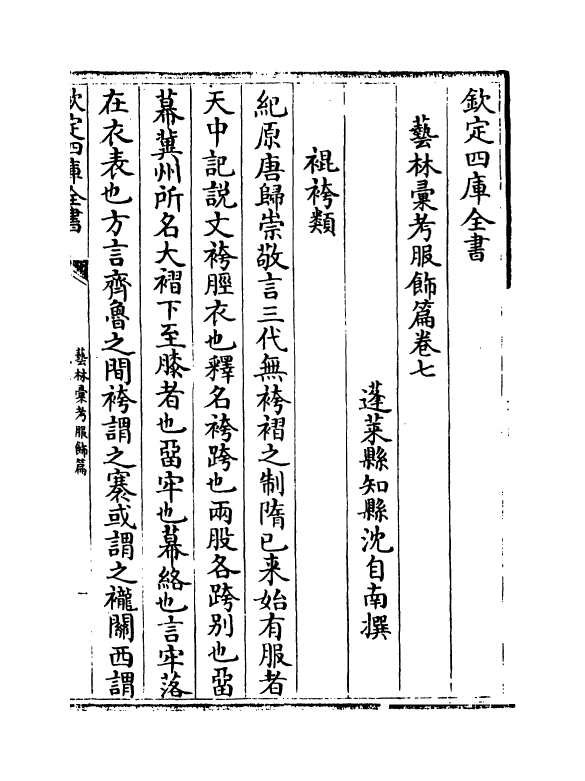 欽定四庫全書
藝林彚考服飾篇卷七
蓬萊縣知縣沈自南撰
裩袴類
紀原唐歸崇敬言三代無袴褶之制隋已来始有服者
天中記説文袴脛衣也釋名袴跨也兩股各跨别也㽞
幕冀州所名大褶下至膝者也㽞牢也幕絡也言牢落
在衣表也方言齊魯之間袴謂之褰或謂之襱關西謂
欽定四庫全書
藝林彚考服飾篇
一